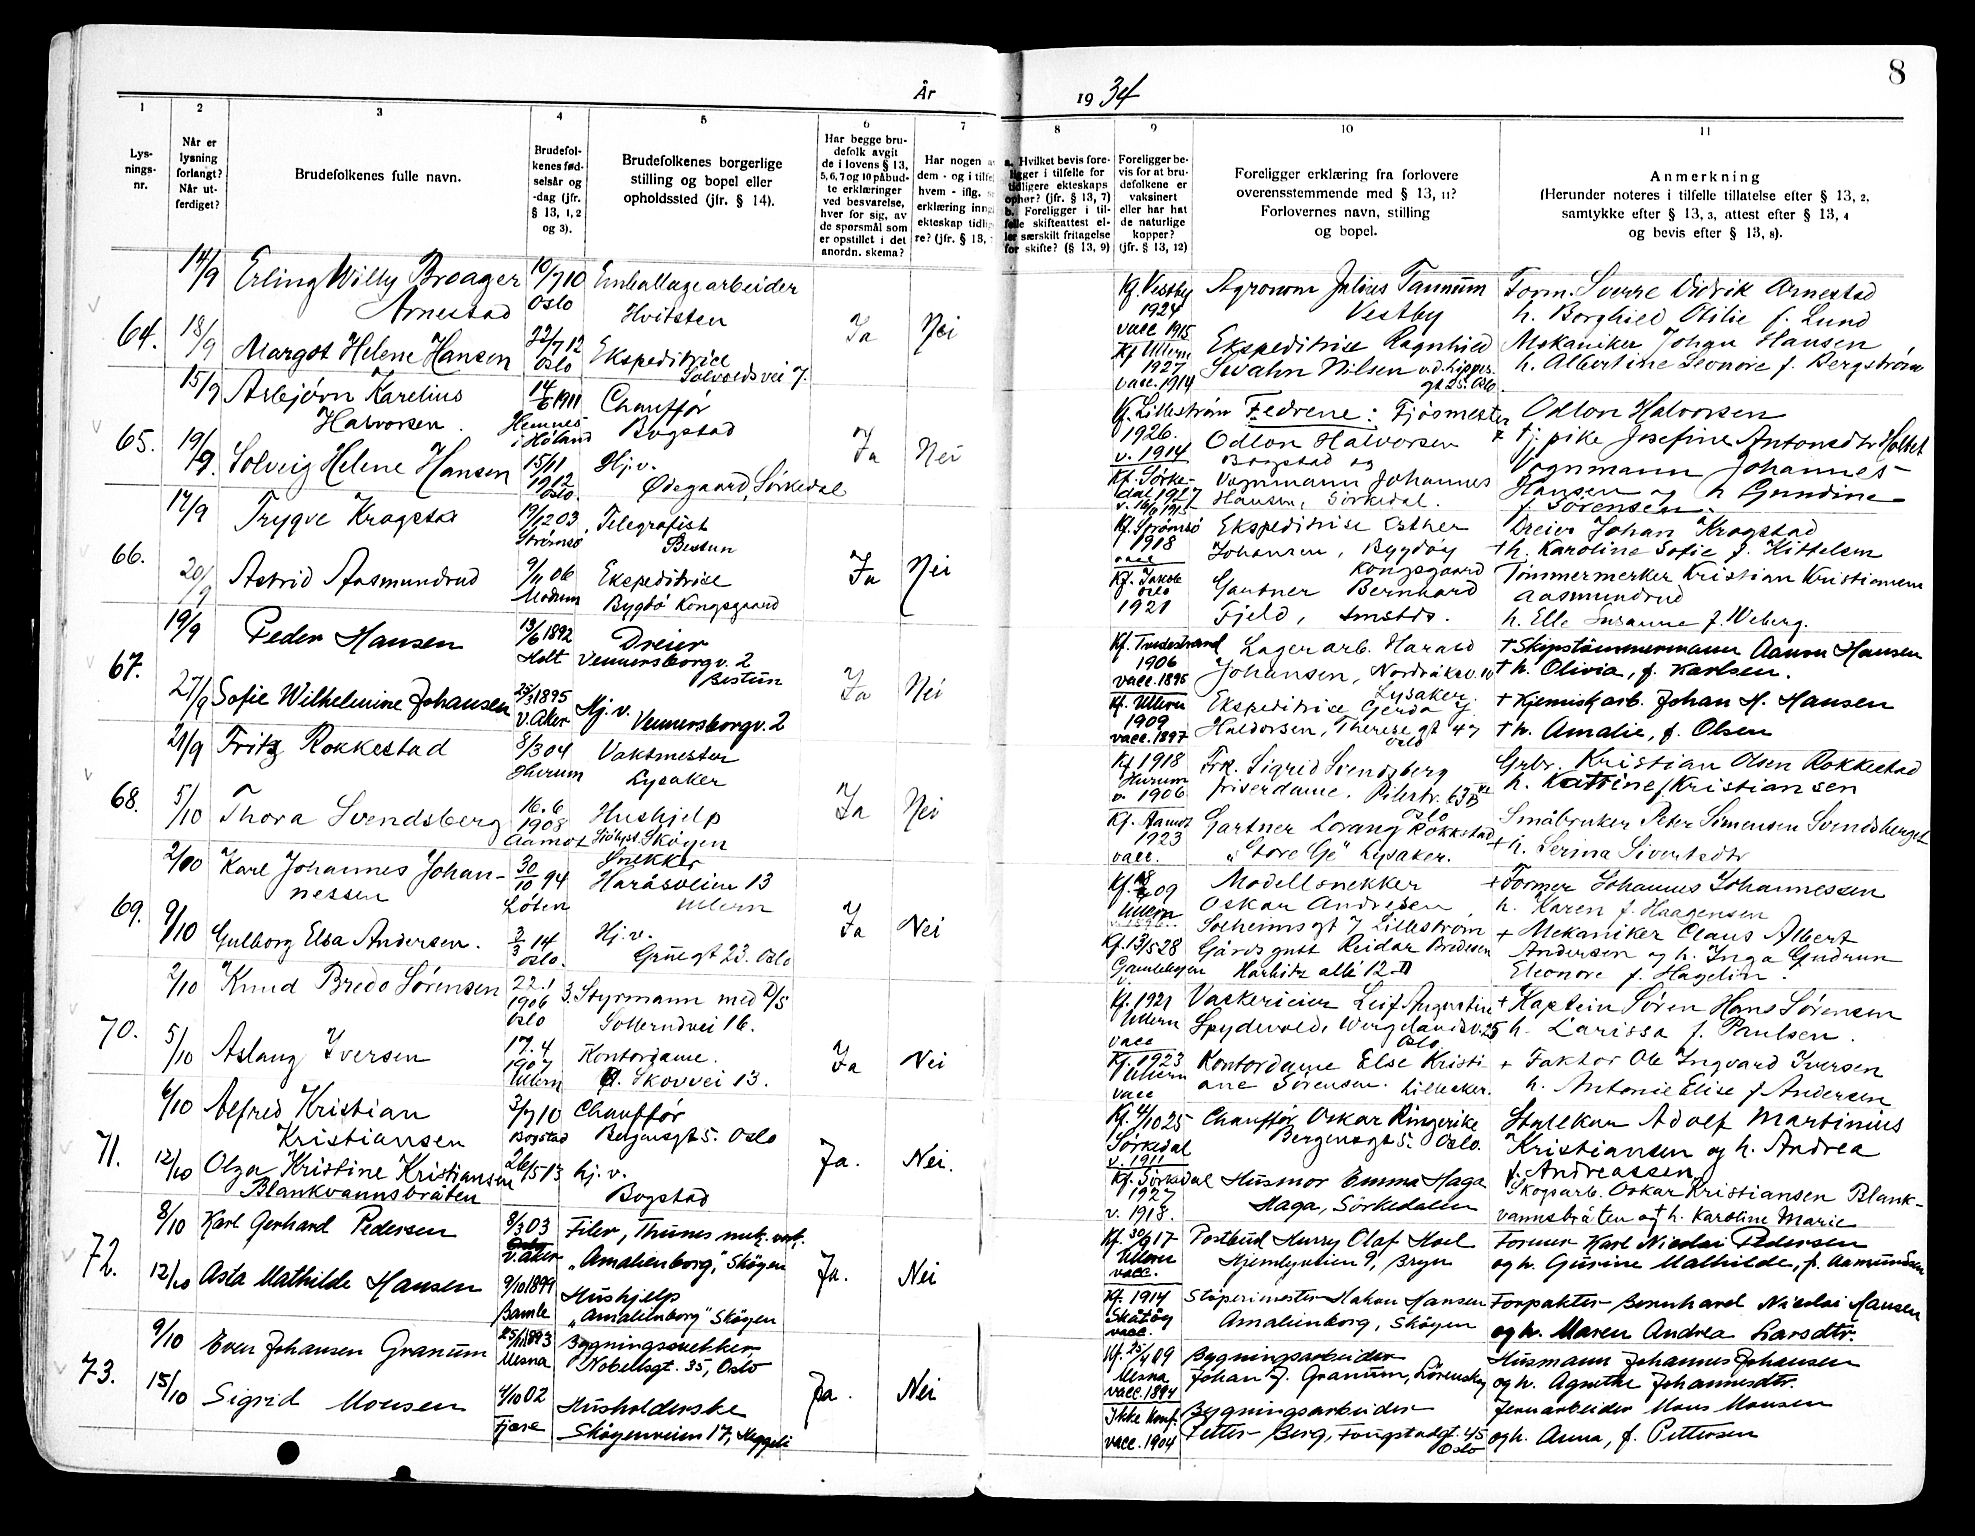 8
År 1934
1 2 3 4 5 6 7 8 9 10 11
Lys-
nings-
nr.
Når er
lysning
forlangt?
Når ut-
ferdiget?
Brudefolkenes fulle navn.
Brudefol-
kenes fød-
selsår og
-dag (jfr.
§ 13, 1, 2
og 3).
Brudefolkenes borgerlige
stilling og bopel eller
opholdssted (jfr. § 14).
Har begge bru-
defolk avgit
de i lovens § 13,
5, 6, 7 og 10 påbud-
te erklæringer
ved besvarelse,
hver for sig, av
de spørsmål som
er opstillet i det
anordn. skema?
Har nogen a
dem - og i tilfe
hvem - iflg.
erklæring inng
ekteskap tidlig
re? (jfr. § 13,
a. Hvilket bevis fore-
ligger i tilfelle for
tidligere ekteskaps
ophør? (jfr. § 13, 7)
b. Foreligger i til-
felle skifteattest el-
ler særskilt fritagelse
for skifte? (§ 13, 9)
Foreligger be-
vis for at bru-
defolkene er
vaksinert
eller har hat
de naturlige
kopper?
(jfr. § 13, 12)
Foreligger erklæring fra forlovere
overensstemmende med § 13, 11?
Forlovernes navn, stilling
og bopel.
Anmerkning
(Herunder noteres i tilfelle tillatelse efter § 13, 2,
samtykke efter § 13, 3, attest efter § 13, 4
og bevis efter § 13, 8).
64.
14/9 Erling Willy Broager
Arnestad
10/7 10
Oslo
Emballagearbeider
Hvitsten
18/9 Margot Helene Hansen
22/7 12
Oslo
Ekspeditrise
Sollvoldsvei 7.
Ja Nei
Kf. Vestby
1924
vacc 1915
Kf Ullern
1927
vacc. 1914
Agronom Julius Tannum
Vestby
Ekspeditrise Ragnhild
Svahn Nilsen
gt 25. Oslo
Form. Sverre Didrik Arnestad
h. Borghild Otilie f. Lund
Mekaniker Johan Hansen
h. Albertine Leonore f. Bergstrøm
65.
15/9 Asbjørn Karelius
Halvorsen.
14/6 1911
Hemnes
i Høland
Chauffør
Bogstad
19/9. Solveig Helene Hansen
15/11
1912
Oslo.
Hj.v.
Ødegaard, Sørkedal
Ja Nei
Kf. Lillestrøm
1926.
v. 1914
Kf. Sørke-
dal 1927
Fedrene: Fjøsmester
Odlon Halvorsen
Bogstad og
Vognmann Johannes
Hansen, Sørkedal.
Odlon Halvorsen
pike Josefine Antonsdtr Holtet
Vognmann Johannes
Hansen og h Gundine
f. Sørensen.
66.
17/9 Trygve Kragstad
17/12 03
Strømsø
Telegrafist
Bestun
20/9 Astrid Aasmundrud
9/11 06
Modum
Ekspeditrise
Bygdø Kongsgaard
Ja Nei
Kf. Strømsø
1918
vacc
Kf. Jakob
Oslo
1921
Ekspeditrise Esther
Johansen, Bygdøy
Kongsgaard
Gartner Bernhard
Fjeld,
Dreier Johan Kragstad
+ h. Karoline Sofie f. Kittelsen
Tømmermerker Kristian Kristiansen
Aasmundrud
h. Elle Susanne f. Weberg.
67.
19/9 Peder Hansen
13/6 1892
Holt
Dreier
Vennersborgv. 2
Bestun
27/9 Sofie Wilhelmine Johansen
25/3 1895
V. Aker
Hj. v.
Vennersborgv. 2
Ja Nei
Kf. Tvedestrand
1906
vacc. 1895
Kf. Ullern
1909
vacc. 1897
Lagerarb. Harald
Johansen, Nordraksv. 10
Lysaker.
Ekspeditrise Gerda J.
Haldorsen, Therese gt 47
Oslo
+ Skipstømmermann Aanon Hansen
+ h. Olivia, f. Karlsen.
+ Kjemiskarb. Johan H. Hansen
+ h. Amalie, f. Olsen
68.
21/9 Fritz Rokkestad
8/3 04
Hurum
Vaktmester
Lysaker
5/10 Thora Svendsberg
16.6
1908
Aamot
Hushjelp
Skøyen
Ja Nei
Kf 1918
Hurum
v. 1906
Kf. Aamot
1923
vacc.
Frk. Sigrid Svendsberg
friserdame. Pilestr. 63 B
Oslo
Gartner Lorang Rokkestad
"Store Ge" Lysaker.
Grbr. Kristian Olsen Rokkestad
h. Katrine f Kristiansen
Småbruker Peter Simensen Svendsberget
+ h. Serina Sivertsdtr
69.
2/10 Karl Johannes Johan-
nessen
30/10 94
Løten
Snekker
Haråsveien 13
Ullern
9/10 Gulborg Elsa Andersen.
3/3 14
Oslo.
Hj. v.
Grüne gt 23. Oslo
Ja Nei
Ullern
Kf. 13/5 28
Gamlebyen
Modellsnekker
Oskar Andresen
Solheimsgt 7 Lillestrøm
Gårdsgutt Reidar Bredesen
Harbitz allé 12 II
+ Former Johannes Johannessen
h. Karen f. Haagensen
+ Mekaniker Claus Albert
Andersen og h. Inga Gudrun
Eleonore f. Hagelin.
70.
2/10 Knud Bredo Sørensen
22.1
1906
Oslo
3. Styrmann med D/S
Sollerudvei 16.
5/10 Aslaug Iversen
17.4
1907
Ullern
Kontordame.
Skovvei 13.
Ja Nei
Kf. 1921
Ullern
vacc
Kf. 1923
Ullern
vacc
Vaskerieier Leif Augustin
Spydevold, Wergelandsv. 25
Oslo
Kontordame Else Kristi-
ane Sørensen. Lilleaker.
+ Kaptein Søren Hans Sørensen
h. Larissa f. Paulsen.
+ Faktor Ole Ingvard Iversen
h. Antonie Elise f Andersen
71.
6/10 Alfred Kristian
Kristiansen
3/7 10
Bogstad
Chauffør
Bergensgt 5. Oslo
12/10 Olga Kristine Kristiansen
Blankvannsbråten
26/5 13
hj. v.
Bogstad
Ja. Nei.
Kf. 4/10 25
Sørkedal
v. 1911
Kf. Sørkedal
1927
v. 1918.
Chauffør Oskar Ringerike
Bergensgt 5. Oslo.
Husmor Emma Haga
Haga, Sørkedalen
Stallkar Adolf Martinius
Kristiansen og h. Andrea
f. Andreassen
Skogsarb. Oskar Kristiansen Blank-
vannsbråten og h. Karoline Marie
72.
8/10 Karl Gerhard Pedersen
8/3 03
V. Aker
Filer, Thunes mek. verk.
"Amalienborg", Skøyen
12/10 Asta Mathilde Hansen
9/10 1899
Bamle
Hushjelp
"Amalienborg" Skøyen
Ja. Nei
Kf. 30/9 17
Ullern
vacc.
Kf. 1914
Skåtøy
vacc.
Postbud Harry Olaf Hoel
Hjemlyveien 9, Bryn
Støperimester Hakon Hansen
Amalienborg, Skøyen
Former Karl Nicolai Pedersen
og h. Gusine Mathilde, f. Aamundsen
Forpakter Bernhard Nicolai Hansen
og h. Maren Andrea Larsdtr.
73.
9/10 Even Johansen Granum
25/11 1893
Mesna
Bygningssnekker
Nobelsgt. 35, Oslo
15/10 Sigrid Monsen
4/10 02
Fjære
Husholderske
Skøyenveien 17, Heggeli
Ja. Nei
Kf. 25/4 09
Mesna
vacc. 1894
Ikke konf.
vacc. 1904
Bygningsarbeider
Johan J. Granum, Lørenskog
Bygningsarbeider
Petter Berg, Fougstadgt. 45
Oslo
Husmann Johannes Johansen
og h. Agnethe Johannesdtr.
Jernarbeider Mons Monsen
og h. Anna, f. Pettersen